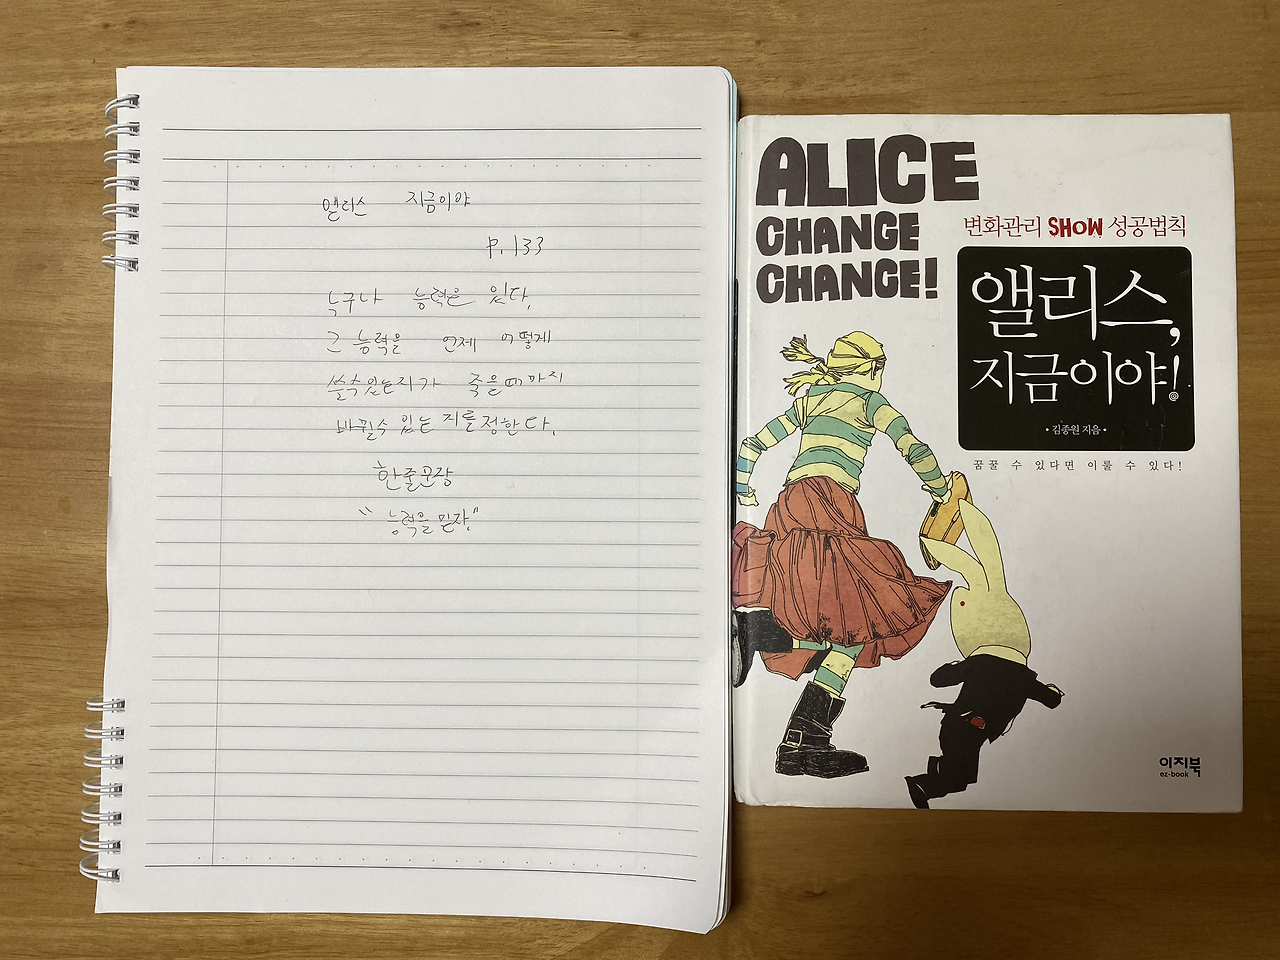 앨리스 지금이야
P.133
누구나 능력은 있다.
그 능력을 언제 어떻게
쓸수있는지가 죽을때까지
바뀔수 있는 지를정한다.
한줄문장
"능력을 믿자."
ALICE
CHANGE
CHANGE!
변화관리 SHOW 성공법칙
앨리스,
지금이야!
• 김종원 지음 •
꿈꿀 수 있다면 이룰 수 있다!
이지북
ez-book